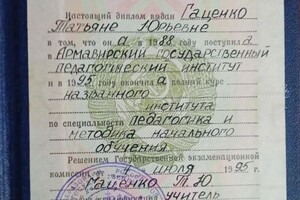 Настоящий диплом выдан Гаценко
Татьяне Юрьевне
в том, что она в 1988 поступила в
Армавирский государственный
педагогический институт
и в 1995 окончила полный курс
названного
института
по специальности педагогика и
методика начального
обучения
Решением Государственной экзаменационной
комиссии июля 1995 г.
Гаценко Т. Ю
учитель